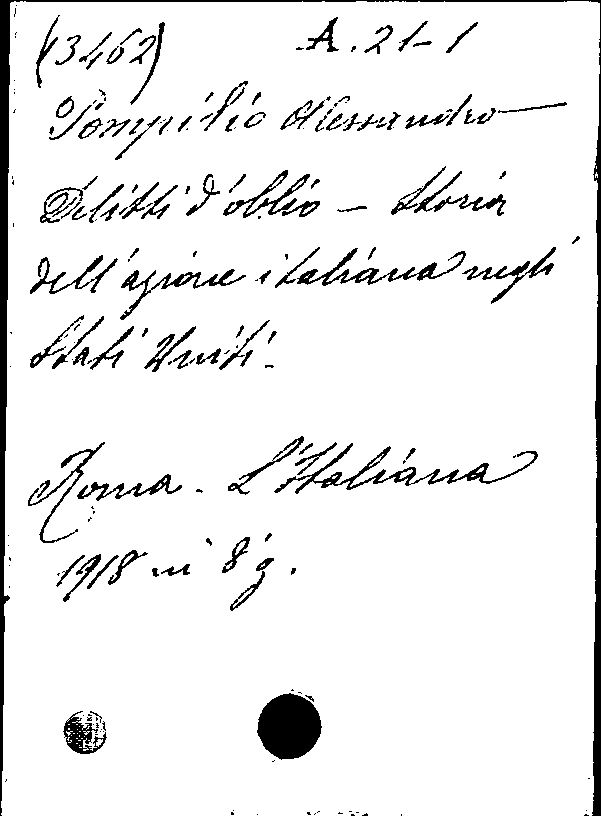 (3462) A. 21-1
Pompilio Alessandro
Delitti d'oblio - Storia
dell'azione italiana negli
Stati Uniti.
Roma - L'Italiana
1918 in 8° g.